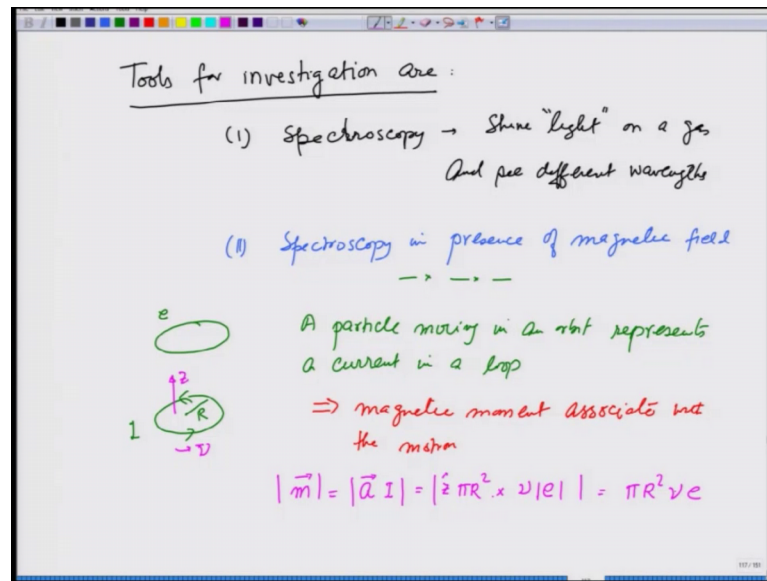 Tools for investigation are :
(I) Spectroscopy → Shine "light" on a gas
And see different wavelengths
(II) Spectroscopy in presence of magnetic field
e
A particle moving in an orbit represents
a current in a loop
z
R
I
→ v
⇒ magnetic moment associated with
the motion
|m⃗| = |a⃗ I| = |ẑ πR² × ν|e| | = πR² ν e
117 / 181